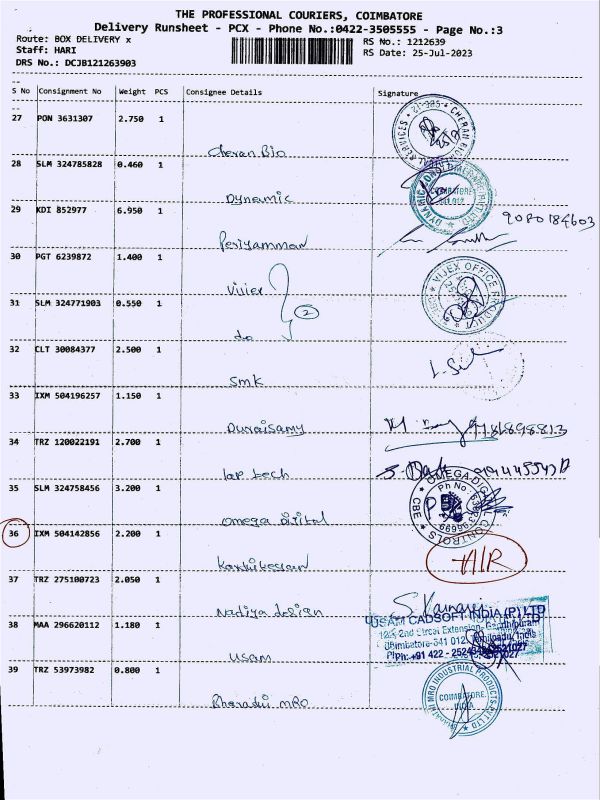 THE PROFESSIONAL COURIERS, COIMBATORE
Delivery Runsheet - PCX - Phone No.:0422-3505555 - Page No.:3
Route: BOX DELIVERY x
RS No.: 1212639
Staff: HARI
RS Date: 25-Jul-2023
DRS No.: DCJB121263903
S No Consignment No Weight PCS Consignee Details Signature
27 PON 3631307 2.750 1
Cheran Bio
28 SLM 324785828 0.460 1
Dynamic
29 KDI 852977 6.950 1
Periyamman
30 PGT 6239872 1.400 1
Vijex
31 SLM 324771903 0.550 1
do
2
32 CLT 30084377 2.500 1
SMK
33 IXM 504196257 1.150 1
Duraisamy
34 TRZ 120022191 2.700 1
lap tech
35 SLM 324758456 3.200 1
Omega Digital
36 IXM 504142856 2.200 1
37 TRZ 275100723 2.050 1
Nadiya design
38 MAA 296620112 1.180 1
USAM CADSOFT INDIA (P) LTD
2nd Street Extension, Gandhipuram
Coimbatore-641 012, Tamilnadu, India
usam
39 TRZ 53973982 0.800 1
COIMBATORE
INDIA
MRO